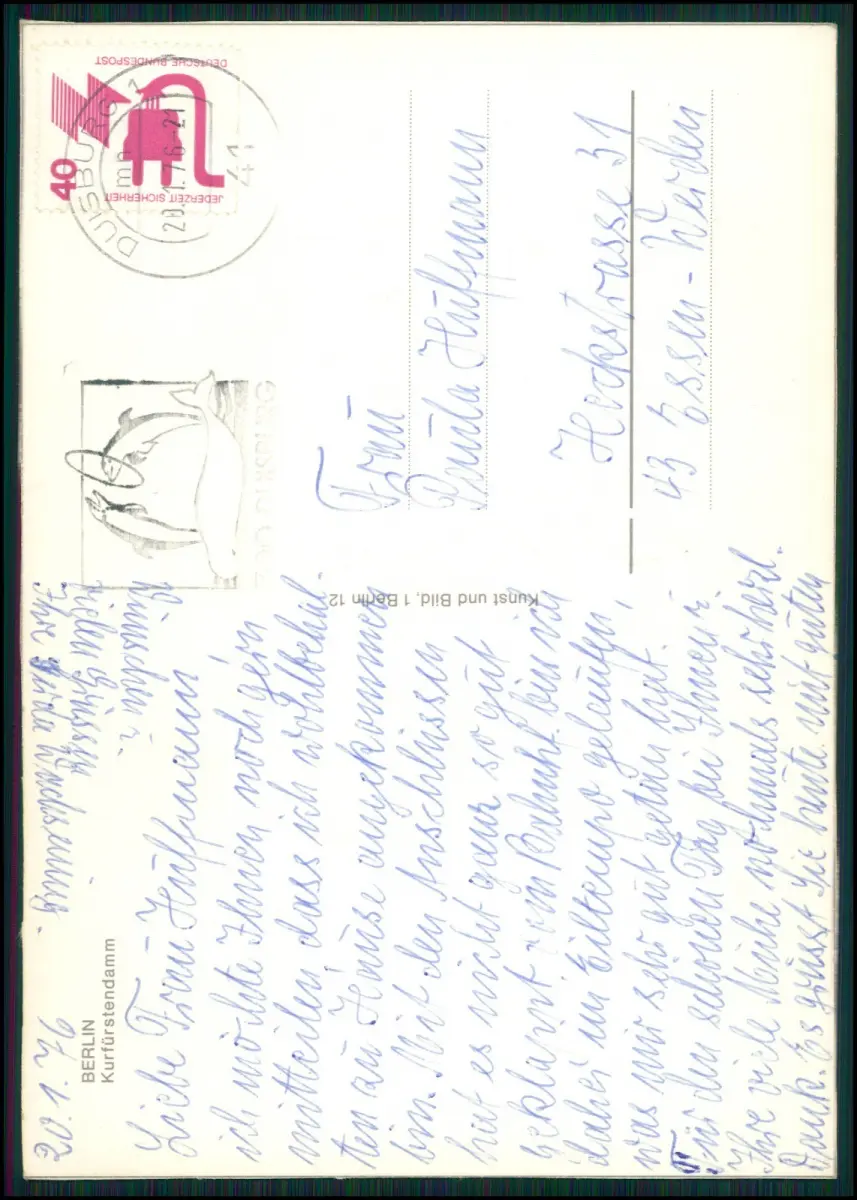 20.1.76
BERLIN
Kurfürstendamm
Liebe Frau Hüffmann!
ich möchte Ihnen noch gern
mitteilen, dass ich wohlbehal-
ten zu Hause angekommen
bin. Mit den Anschlüssen
hat es nicht ganz so gut
geklappt vom Bahnhf. bin ich
daher im Eiltempo gelaufen,
was mir sehr gut getan hat.
Für den schönen Tag bei Ihnen u.
Ihre viele Mühe nochmals sehr herzl.
Dank. Es grüsst Sie heute mit guten
Wünschen u.
vielen Grüssen
Ihre
Kunst und Bild, 1 Berlin 12
DEUTSCHE BUNDESPOST
JEDERZEIT SICHERHEIT
40
41 DUISBURG 1
mn
20.1.76-21
ZOO DUISBURG
Frau
Paula Hüffmann
Heckstrasse 31
43 Essen-Werden